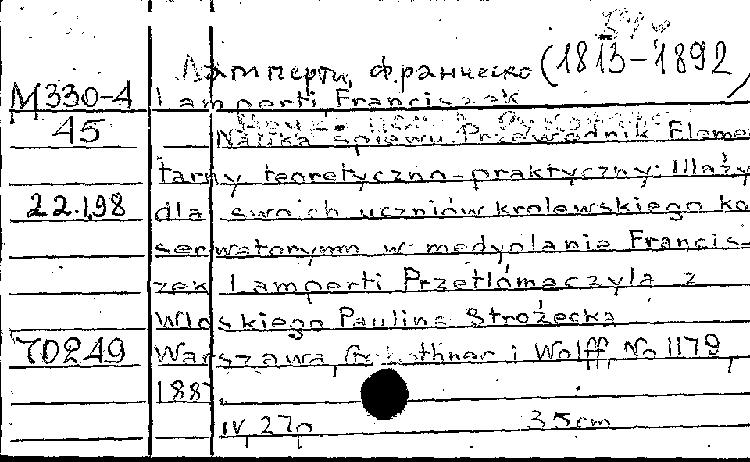 Ламперти, Франческо (1813-1892)
М330-4 Lamperti, Franciszek
45 Nauka śpiewu Przewodnik Elemen
tarny teoretyczno-praktyczny. Ułoży
22.198 dla swoich uczniów krolewskiego ko
serwatorymm w medyolanie Francis-
zek Lamperti Przetlómaczyla z
Wloskiego Paulina Strożecka
70249 Warszawa, Gebethner i Wolff, No 1179,
188
IV, 27p 35cm